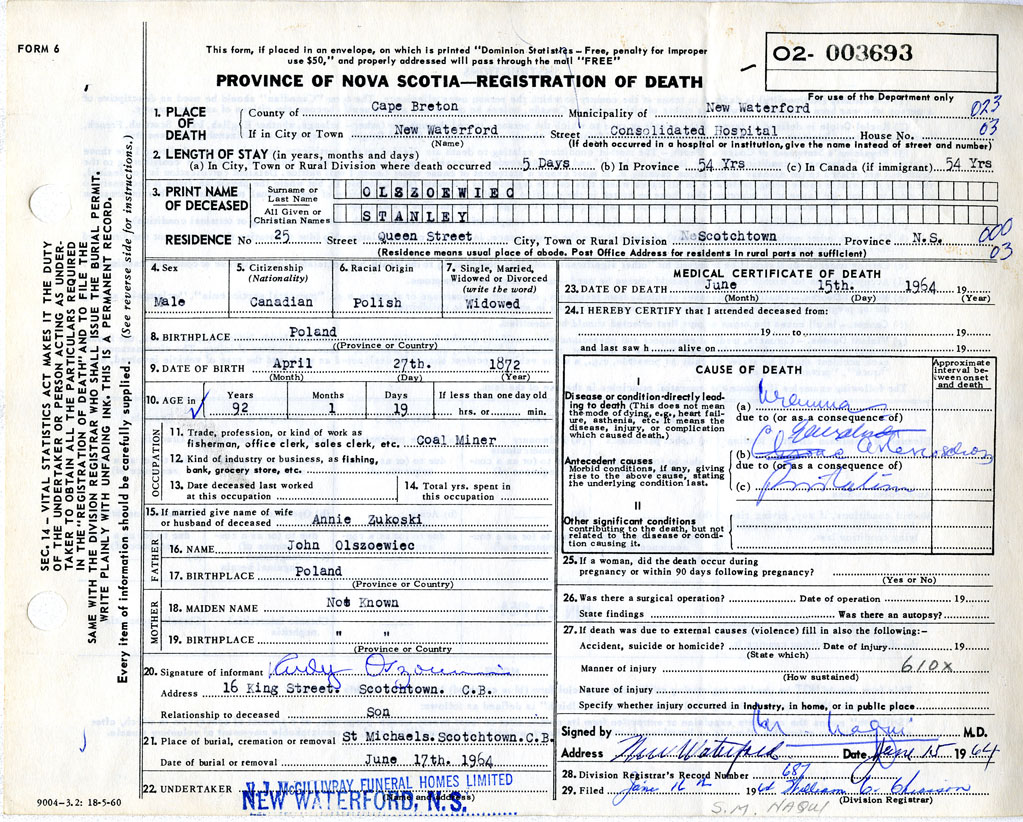 FORM 6
This form, if placed in an envelope, on which is printed "Dominion Statistics – Free, penalty for improper
use $50," and properly addressed will pass through the mail "FREE"
O2- 003693
PROVINCE OF NOVA SCOTIA—REGISTRATION OF DEATH
For use of the Department only
1. PLACE OF DEATH
County of Cape Breton Municipality of New Waterford 023
If in City or Town New Waterford Street Consolidated Hospital House No. 03
(Name) (If death occurred in a hospital or institution, give the name instead of street and number)
2. LENGTH OF STAY (in years, months and days)
(a) In City, Town or Rural Division where death occurred 5 Days (b) In Province 54 Yrs (c) In Canada (if immigrant) 54 Yrs
3. PRINT NAME OF DECEASED
Surname or Last Name OLSZOEWIEC
All Given or Christian Names STANLEY
RESIDENCE No 25 Street Queen Street City, Town or Rural Division Scotchtown Province N.S. 000
03
(Residence means usual place of abode. Post Office Address for residents in rural parts not sufficient)
4. Sex
Male
5. Citizenship (Nationality)
Canadian
6. Racial Origin
Polish
7. Single, Married, Widowed or Divorced (write the word)
Widowed
8. BIRTHPLACE Poland
(Province or Country)
9. DATE OF BIRTH April 27th. 1872
(Month) (Day) (Year)
10. AGE in Years Months Days If less than one day old
92 1 19 hrs. or min.
OCCUPATION
11. Trade, profession, or kind of work as
fisherman, office clerk, sales clerk, etc. Coal Miner
12. Kind of industry or business, as fishing,
bank, grocery store, etc.
13. Date deceased last worked at this occupation
14. Total yrs. spent in this occupation
15. If married give name of wife
or husband of deceased Annie Zukoski
FATHER
16. NAME John Olszoewiec
17. BIRTHPLACE Poland
(Province or Country)
MOTHER
18. MAIDEN NAME Not Known
19. BIRTHPLACE " "
(Province or Country)
20. Signature of informant Andy
Address 16 King Street. Scotchtown. C.B.
Relationship to deceased Son
21. Place of burial, cremation or removal St Michaels. Scotchtown. C.B.
Date of burial or removal June 17th. 1964
22. UNDERTAKER (Name and address)
V. J. McGILLIVRAY FUNERAL HOMES LIMITED
NEW WATERFORD, N.S.
MEDICAL CERTIFICATE OF DEATH
23. DATE OF DEATH June 15th. 1964 19
(Month) (Day) (Year)
24. I HEREBY CERTIFY that I attended deceased from:
19 to 19
and last saw h alive on 19
CAUSE OF DEATH
Approximate interval between onset and death
I
Disease or condition directly leading to death (This does not mean the mode of dying, e.g., heart failure, asthenia, etc. It means the disease, injury, or complication which caused death.)
(a) Uraemia
due to (or as a consequence of)
Antecedent causes
Morbid conditions, if any, giving rise to the above cause, stating the underlying condition last.
(b)
due to (or as a consequence of)
(c)
II
Other significant conditions
contributing to the death, but not related to the disease or condition causing it.
25. If a woman, did the death occur during
pregnancy or within 90 days following pregnancy?
(Yes or No)
26. Was there a surgical operation? Date of operation 19
State findings Was there an autopsy?
27. If death was due to external causes (violence) fill in also the following:–
Accident, suicide or homicide? Date of injury 19
(State which)
Manner of injury 610x
(How sustained)
Nature of injury
Specify whether injury occurred in industry, in home, or in public place
Signed by M. Naqui M.D.
Address New Waterford Date June 15 1964
28. Division Registrar's Record Number 687
29. Filed June 16 1964 William C. Chiasson
(Division Registrar)
S.M. NAQUI
SEC. 14 – VITAL STATISTICS ACT MAKES IT THE DUTY
OF THE UNDERTAKER OR PERSON ACTING AS UNDER-
TAKER TO OBTAIN ALL THE PARTICULARS REQUIRED
IN THE "REGISTRATION OF DEATH" AND TO FILE THE
SAME WITH THE DIVISION REGISTRAR WHO SHALL ISSUE THE BURIAL PERMIT.
WRITE PLAINLY WITH UNFADING INK. THIS IS A PERMANENT RECORD.
Every item of information should be carefully supplied. (See reverse side for instructions.)
9004-3.2: 18-5-60